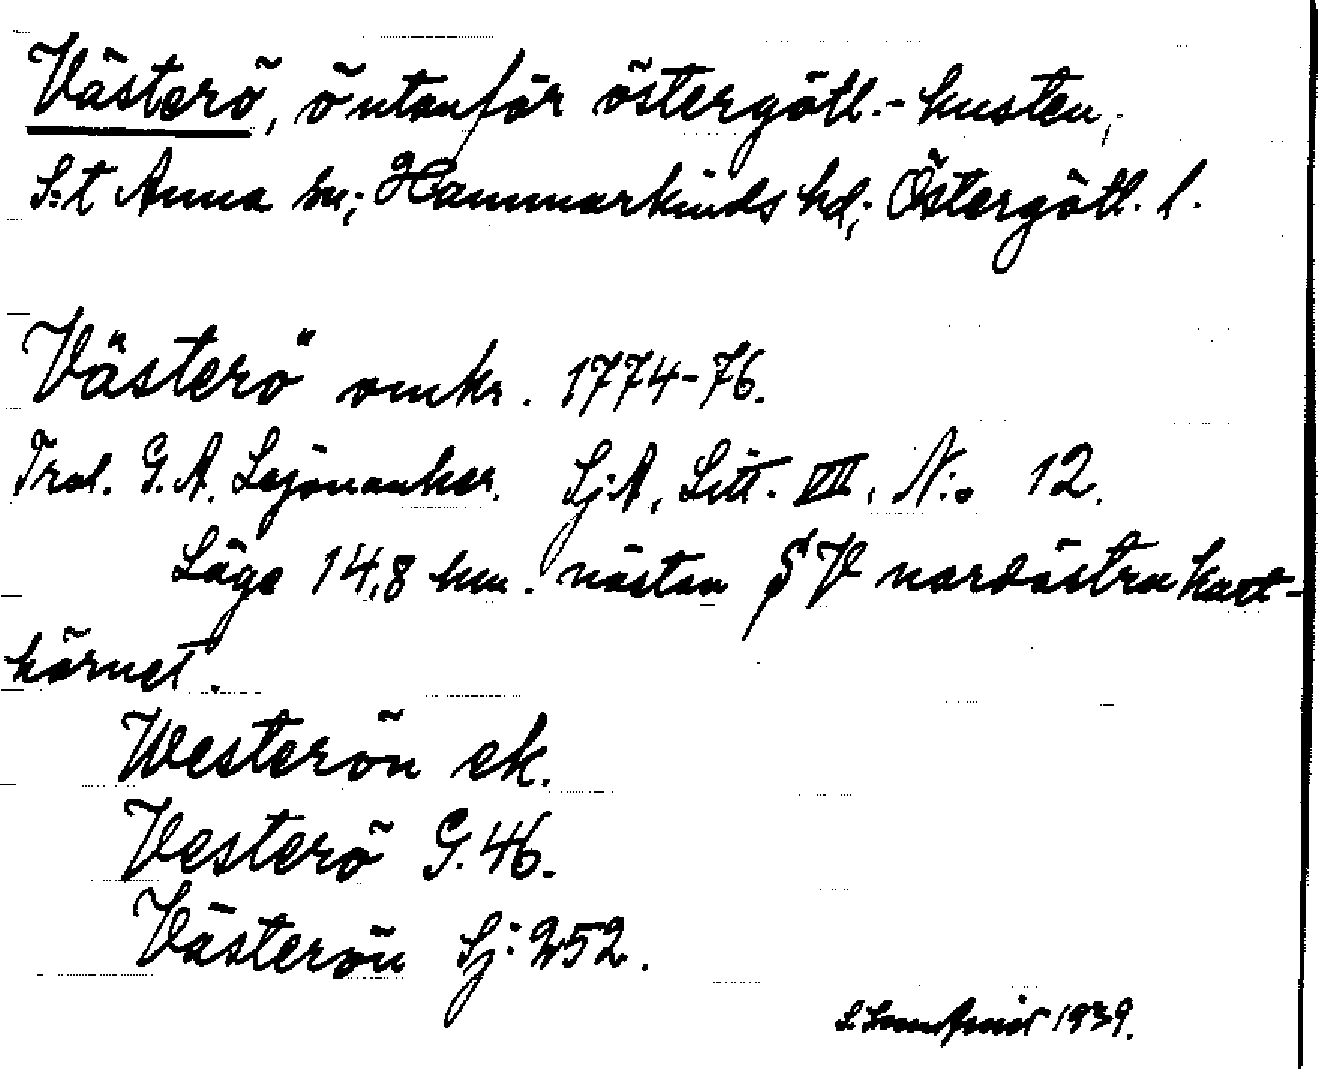 Västerö, ö utanför östergötl.-kusten,
S:t Anna sn; Hammarkinds hd; Östergötl. l.
Västerö omkr. 1774-76.
Trol. G. A. Lejonanker. Sj:A, Litt. VIII, N:o 12.
Läge 14,8 km. nästan S V nordöstra kart-
hörnet.
Westerön ek.
Vesterö G. 46.
Västerön Sj: 252.
1939.